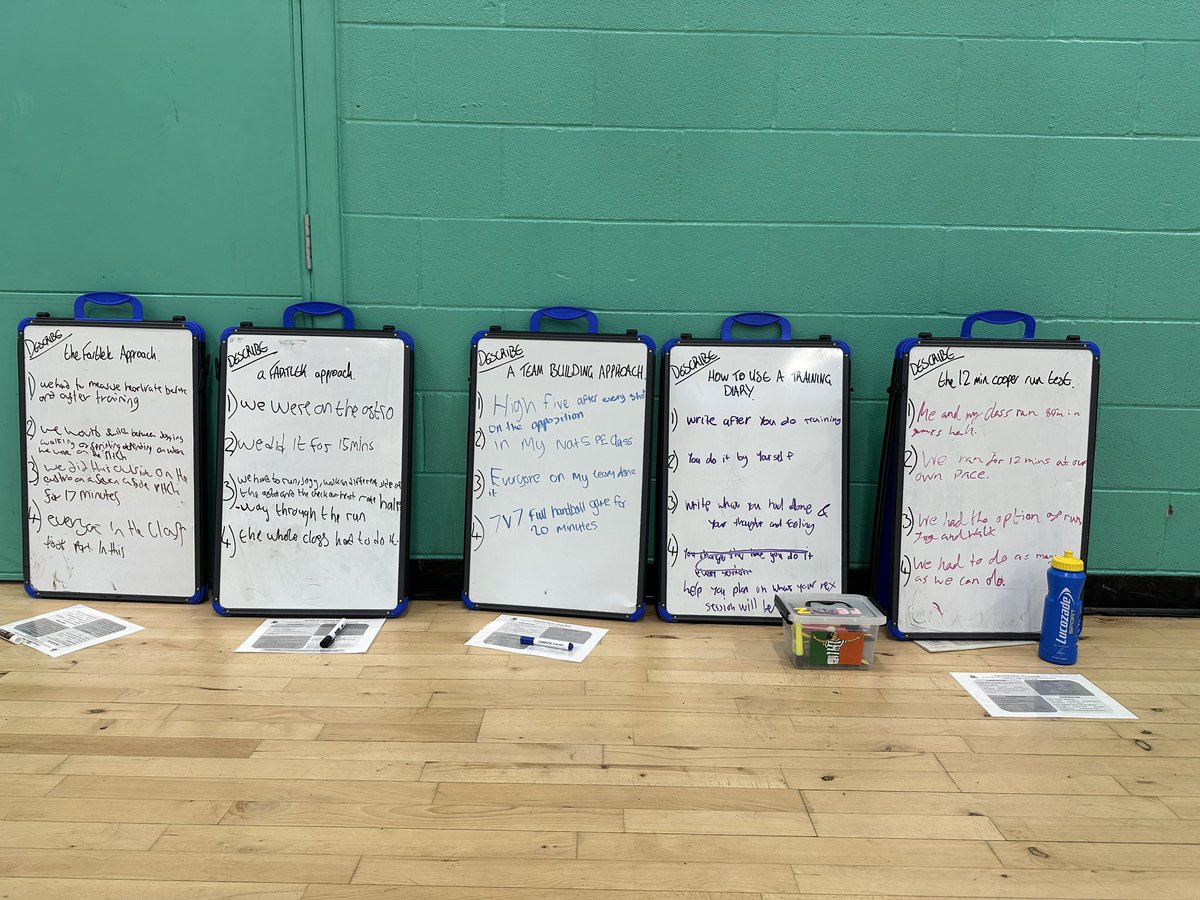 DESCRIBE
the Fartlek Approach
1) we had to measure heartrate before
and after training
2) we would switch between jogging
walking or sprinting depending on where
we were on the Pitch
3) we did this outside on the
astro on a seven a side pitch
for 17 minutes
4) everyone in the Class
took part in this
DESCRIBE
a FARTLEK approach.
1) we were on the astro
2) we did it for 15mins
3) we had to run, jog, walk on different side of
the astro and the check our heart rate half
-way through the run
4) the whole class had to do it.
DESCRIBE
A TEAM BUILDING APPROACH.
1) High five after every shot
on the opposition
2) in My Nat 5 PE Class
3) Everyone on my team done
it
4) 7V7 full handball game for
20 minutes
DESCRIBE
HOW TO USE A TRAINING
DIARY.
1) write after you do training
2) You do it by yourself
3) Write what you had done &
your thought and feeling
4) You change the time you do it
every session
help you plan on what your nex
session will be
DESCRIBE
the 12 min cooper run test.
1) Me and my class run in
games hall.
2) We ran for 12 mins at our
own Pace.
3) We had the option of run,
Jog and walk
4) We had to do as man
as we can do.
LUCOZADE
SPORT